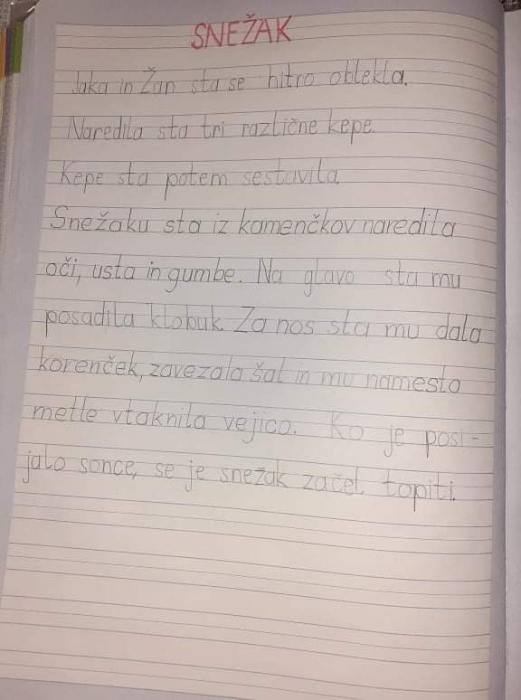 SNEŽAK
Jaka in Žan sta se hitro oblekla.
Naredila sta tri različne kepe.
Kepe sta potem sestavila
Snežaku sta iz kamenčkov naredila
oči, usta in gumbe. Na glavo sta mu
posadila klobuk. Za nos sta mu dala
korenček, zavezala šal in mu namesto
metle vtaknila vejico. Ko je posi-
jalo sonce, se je snežak začel topiti.